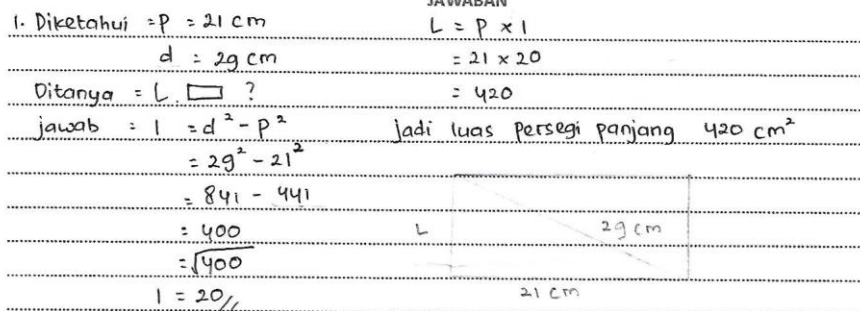 JAWABAN
1. Diketahui = P = 21 cm
d = 29 cm
Ditanya = L. ▭ ?
jawab : l = d² - P²
= 29² - 21²
= 841 - 441
= 400
= √400
l = 20//
L = P × l
= 21 × 20
= 420
jadi luas persegi panjang 420 cm²
L
29 cm
21 cm